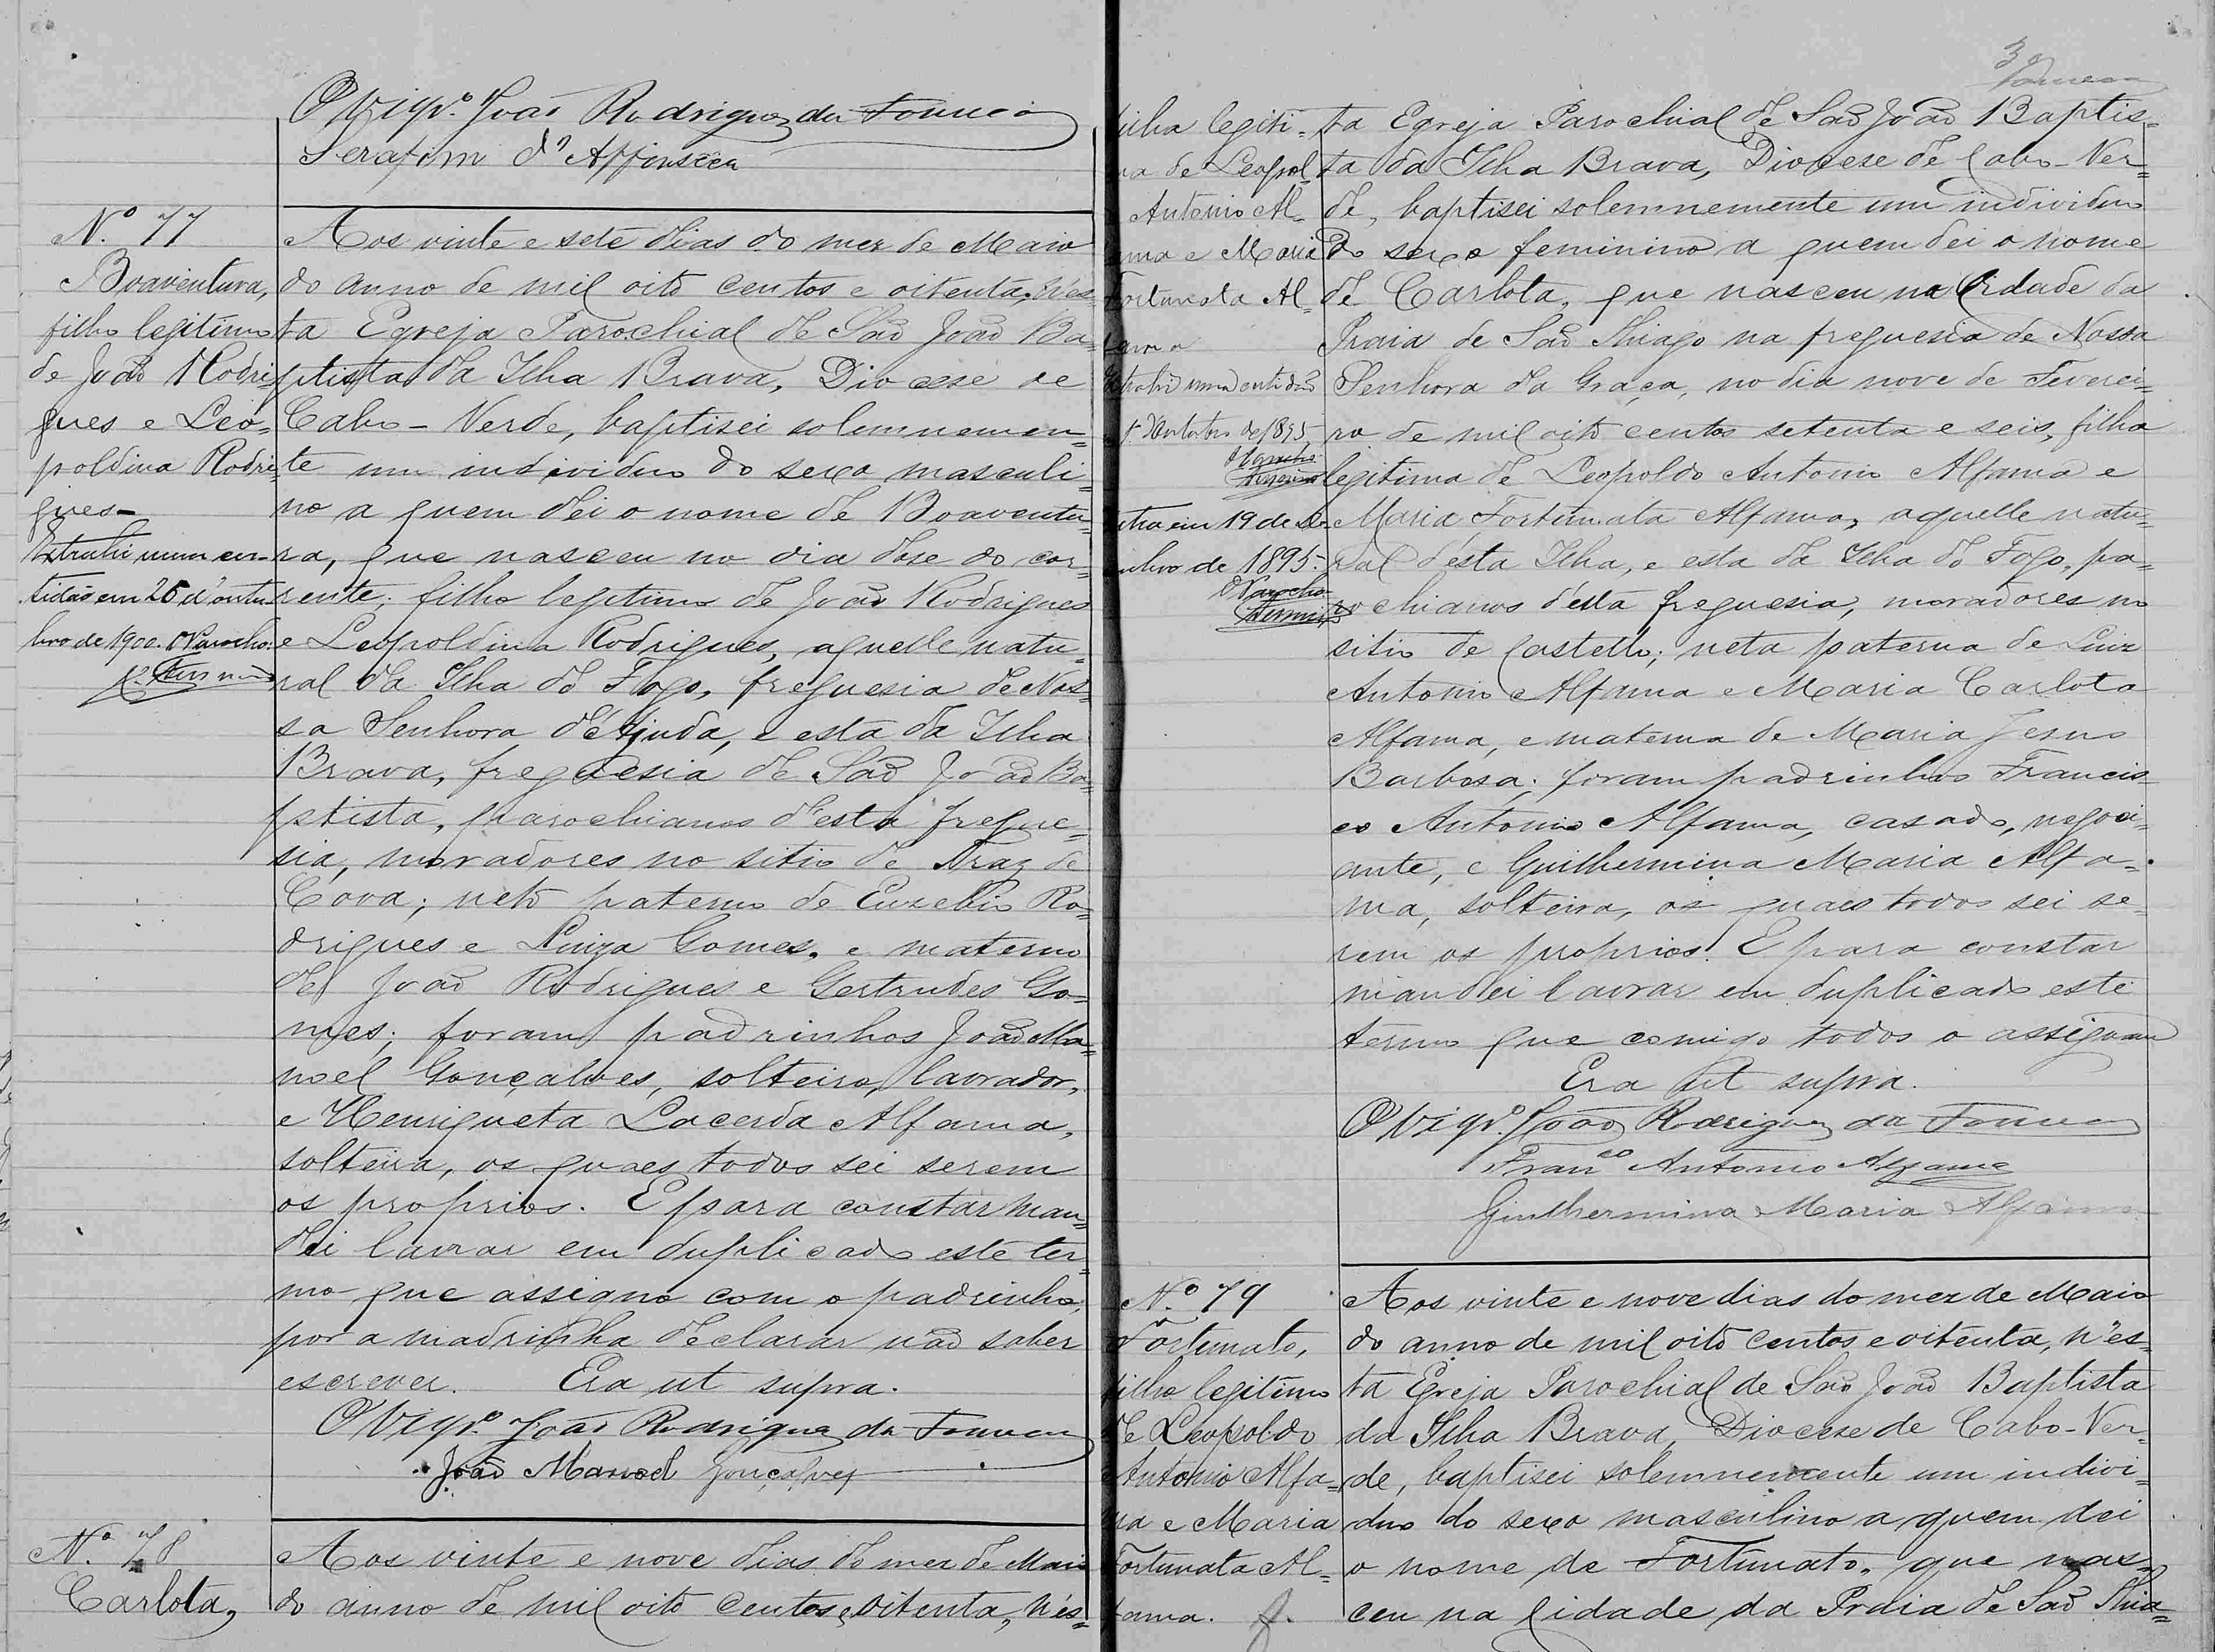 O Vigr.º João Rodrigues da Fonseca
Serafim d'Affonseca
N.º 77
Boaventura,
filho legitimo
de João Rodri
gues e Leo=
poldina Rodri
gues-
Extrahi uma cer-
tidão em 26 d'outu
bro de 1900. O Parocho:
Aos vinte e sete dias do mez de Maio
do anno de mil oito centos e oitenta, n'es=
ta Egreja Parochial de São João Ba=
ptista da Ilha Brava, Diocese de
Cabo-Verde, baptisei solemnemen=
te um individuo do sexo masculi=
no a quem dei o nome de Boaventu=
ra, que nasceu no dia dose do cor=
rente; filho legitimo de João Rodrigues
e Leopoldina Rodrigues, aquelle natu=
ral da Ilha do Fogo, freguesia de Nos=
sa Senhora d'Ajuda, e esta da Ilha
Brava, freguesia de São João Ba=
ptista, parochianos d'esta fregue=
sia, moradores no sitio de Traz de
Cova; neto paterno de Euzebio Ro=
drigues e Luiza Gomes, e materno
de João Rodrigues e Gertrudes Go=
mes; foram padrinhos João Ma=
noel Gonçalves, solteiro, lavrador,
e Henriqueta Lacerda Alfama,
solteira, os quaes todos sei serem
os proprios. E para constar man=
dei lavrar em duplicado este ter=
mo que assigno com o padrinho,
por a madrinha declarar não saber
escrever. Era ut supra.
O Vigr.º João Rodrigues da Fonseca
João Manoel Gonçalves
N.º 78
Carlota,
Aos vinte e nove dias do mez de Maio
do anno de mil oito centos e oitenta, n'es=
filha legiti=
ma de Leopol=
Antonio Al=
ama e Maria
Fortunata Al=
fama
Extrahi uma certidão
d'Outubro de 1895,
O Parocho
Outra em 19 de
de 1895.
O Parocho
ta Egreja Parochial de São João Baptis=
ta da Ilha Brava, Diocese de Cabo-Ver=
de, baptisei solemnemente um individuo
do sexo feminino a quem dei o nome
de Carlota, que nasceu na Cidade da
Praia de São Thiago na freguesia de Nossa
Senhora da Graça, no dia nove de Feverei=
ro de mil oito centos setenta e seis, filha
legitima de Leopoldo Antonio Alfama e
Maria Fortunata Alfama, aquelle natu=
ral d'esta Ilha, e esta da Ilha do Fogo, pa=
rochianos d'esta freguesia, moradores no
sitio de Castello; neta paterna de Luiz
Antonio Alfama e Maria Carlota
Alfama, e materna de Maria Jesus
Barbosa; foram padrinhos Francis=
co Antonio Alfama, casado, negoci=
ante, e Guilhermina Maria Alfa=
ma, solteira, os quaes todos sei se=
rem os proprios. E para constar
mandei lavrar em duplicado este
termo que comigo todos o assignam
Era ut supra.
O Vigr.º João Rodrigues da Fonseca
Fran.co Antonio Alfama
Guilhermina Maria Alfama
N.º 79
Fortunato,
filho legitimo
de Leopoldo
Antonio Alfa=
ma e Maria
Fortunata Al=
fama. f.
Aos vinte e nove dias do mez de Maio
do anno de mil oito centos e oitenta, n'es=
ta Egreja Parochial de São João Baptista
da Ilha Brava, Diocese de Cabo-Ver=
de, baptisei solemnemente um indivi=
duo do sexo masculino a quem dei
o nome de Fortunato, que nas=
ceu na Cidade da Praia de São Thia=